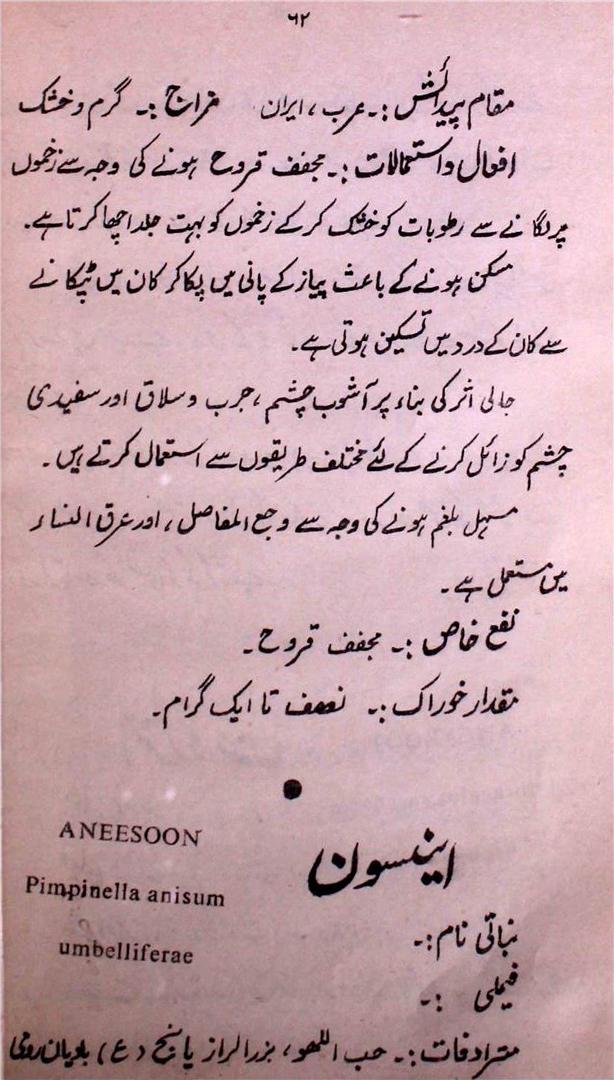 ۶۲
مقام پیدائش :۔ عرب، ایران مزاج :۔ گرم و خشک
افعال و استعمالات :۔ مجفف قروح ہونے کی وجہ سے زخموں
پر لگانے سے رطوبات کو خشک کر کے زخموں کو بہت جلد اچھا کرتا ہے۔
مسکن ہونے کے باعث پیاز کے پانی میں پکا کر کان میں ٹپکانے
سے کان کے درد میں تسکین ہوتی ہے۔
جالی اثر کی بناء پر آشوب چشم، جرب و سلاق اور سفیدی
چشم کو زائل کرنے کے لئے مختلف طریقوں سے استعمال کرتے ہیں۔
مسہل بلغم ہونے کی وجہ سے وجع المفاصل، اور عرق النساء
میں مستعمل ہے۔
نفع خاص :۔ مجفف قروح۔
مقدار خوراک :۔ نصف تا ایک گرام۔
ANEESOON
انیسون
Pimpinella anisum
نباتی نام :۔
umbelliferae
فیملی :۔
مترادفات :۔ حب اللھو، بزر الراز یانج (ع) بادیان رومی